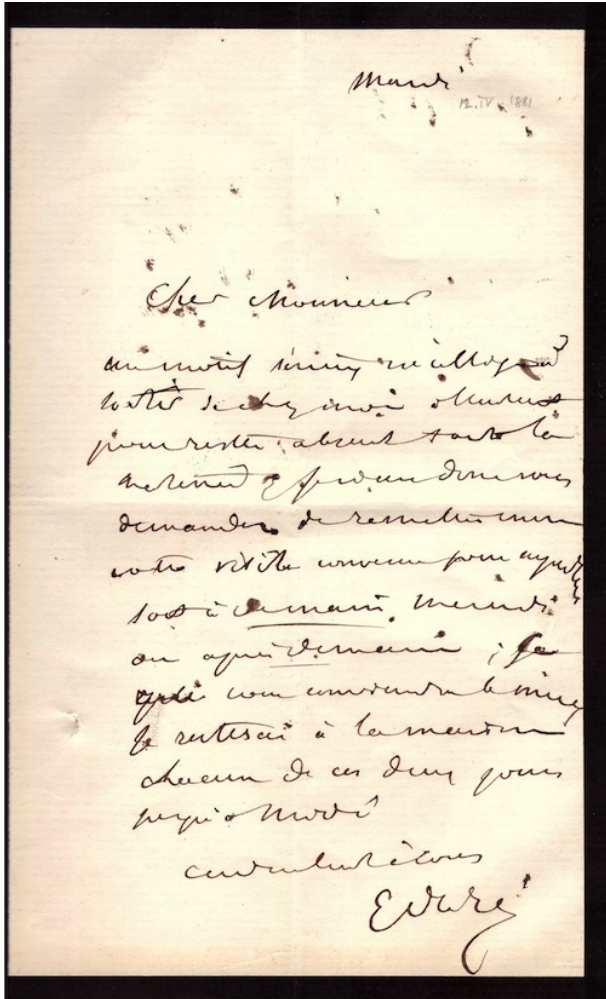 Mardi
12.IV.1881
Cher Monsieur
un motif m'oblige à
sortir de chez moi
pour rester absent toute la
je viens donc vous
demander de remettre
votre visite convenue pour
soit à demain mercredi
ou après demain ;
vous conviendra le mieux
je resterai à la maison
chacun de ces deux jours
jusqu'à midi
cordialement à vous